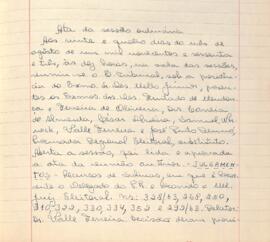 Ata da sessão ordinária
Aos vinte e quatro dias do mês de
agôsto de um mil novecentos e sessenta
e três, às dez horas, na sala das sessões,
reuniu-se o E. Tribunal, sob a presidên-
cia do Exmo. Sr. Des. Mello Júnior, presen-
tes os Exmos. Srs. Des. Furtado de Mendon-
ça e Ferreira de Oliveira, Drs. Corrêa
de Almeida, César Silveira, Samuel
Valle Ferreira e José Paulo
Procurador Regional Eleitoral, substituto.
Aberta a sessão, foi lida e aprovada
a ata da reunião anterior. - JULGAMEN-
TOS - Recursos de em que é Recor-
rente o Delegado do P.R. e Recorrido o
Juiz Eleitoral. Ns: 328/63,
e 290/63. Relator:
Dr. Valle Ferreira. Decisão: